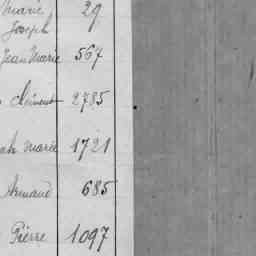 Marie 29
Joseph
Jean Marie 567
Clément 2785
Marie 1721
Armand 685
Pierre 1097